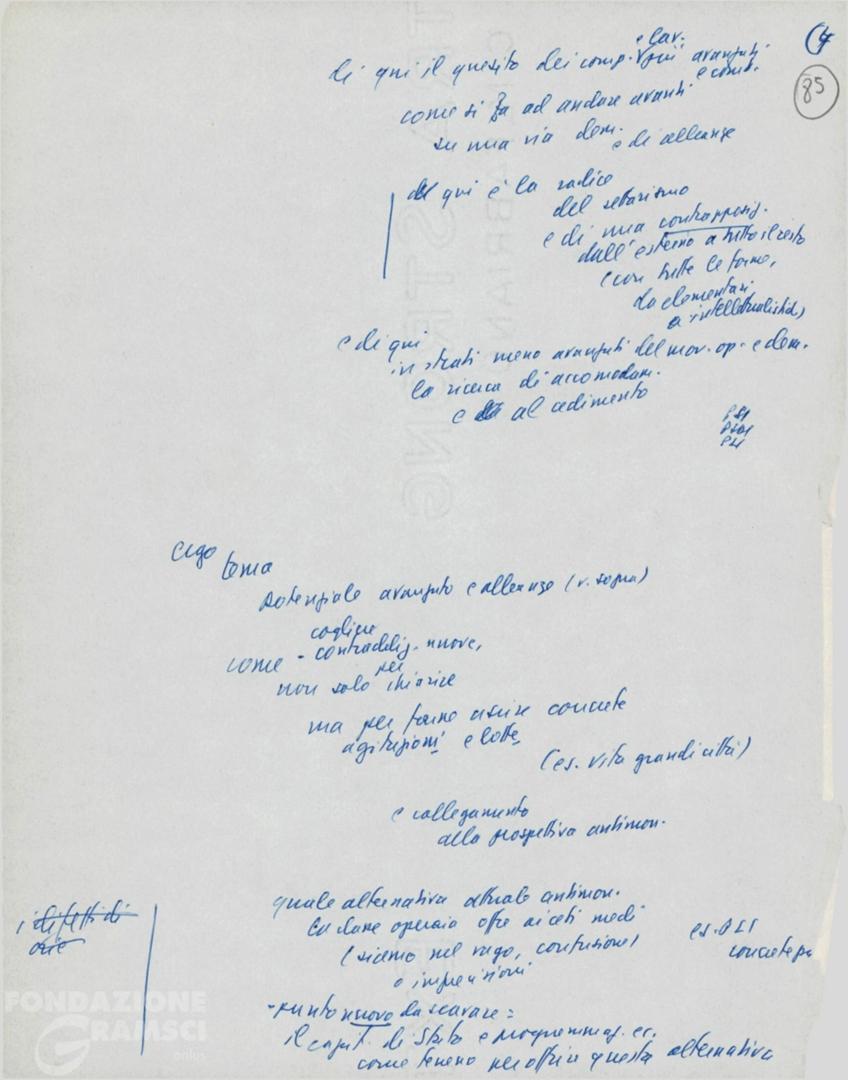 (4
85
di qui il quesito dei comp. e lav. più avanzati
e comb.
come si fa ad andare avanti
su una via dem.
e di alleanze
di qui è la radice
del settarismo
e di una contrapposiz.
dall'esterno a tutto il resto
(con tutte le forme,
da elementari
a intellettualistich.)
e di qui
in strati meno avanzati del mov. op. e dem.
la ricerca di accomodam.
e al cedimento
PSI
PSDI
ergo tema
potenziale avanzato e alleanze (v. sopra)
cogliere
come - contraddiz. nuove,
non solo per chiarire
ma per farne uscire concrete
agitazioni e lotte
(es. vita grandi città)
e collegamento
alla prospettiva antimon.
quale alternativa attuale antimon.
la classe operaia offre ai ceti medi
(siamo nel vago, confusione)
o imprecisioni
es. PSI
concrete
i difetti di
- punto nuovo da scavare:
il capit. di Stato e programmaz. ec.
come terreno per offrire questa alternativa
FONDAZIONE
GRAMSCI
onlus